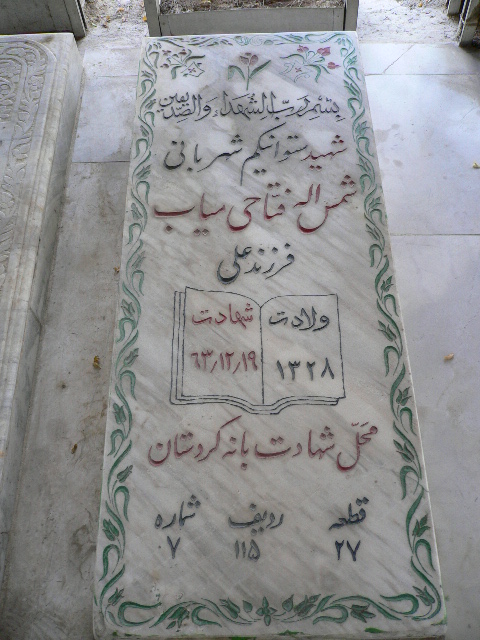 بسم رب الشهداء والصدیقین
شهید ستوانیکم شهربانی
شمس اله فتاحی سیاب
فرزند علی
ولادت شهادت
۱۳۲۸ ۶۳/۱۲/۱۹
محلّ شهادت بانه کردستان
قطعه ردیف شماره
۲۷ ۱۱۵ ۷